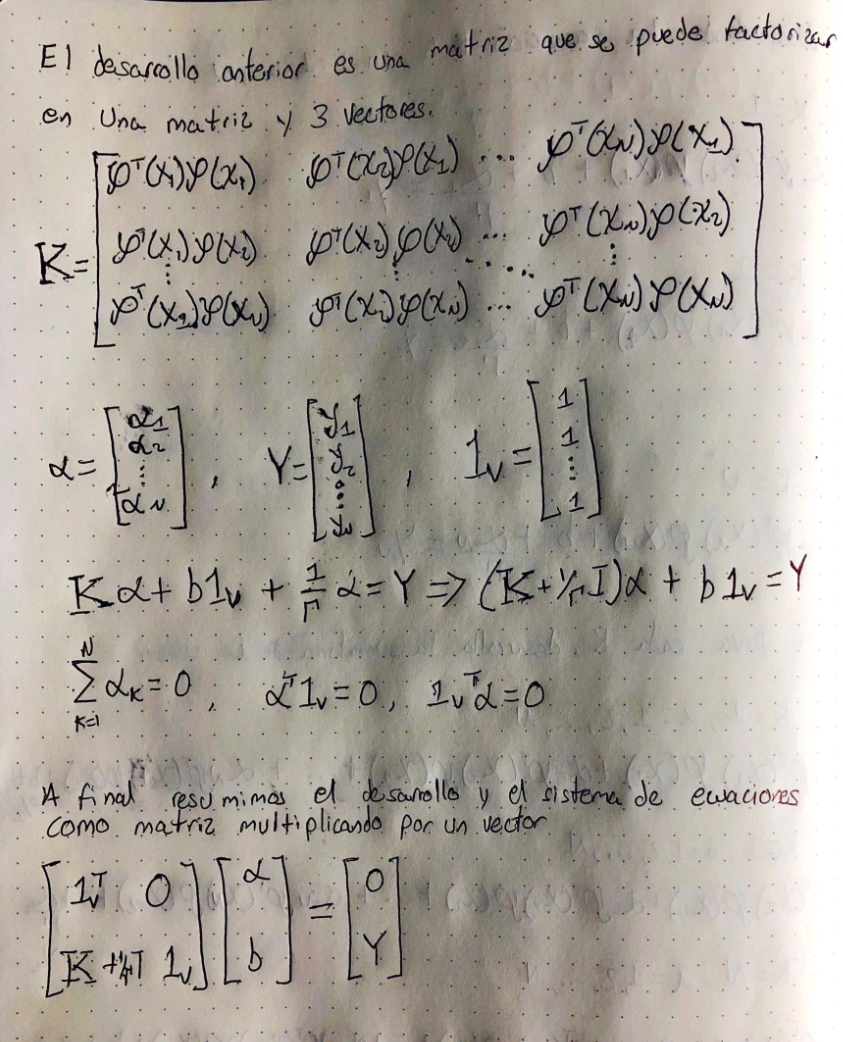 El desarrollo anterior es una matriz que se puede factorizar
en Una matriz y 3 vectores.
K = [φᵀ(x₁)φ(x₁) φᵀ(x₂)φ(x₁) ... φᵀ(x_N)φ(x₁)
φᵀ(x₁)φ(x₂) φᵀ(x₂)φ(x₂) ... φᵀ(x_N)φ(x₂)
⋮ ⋮ ⋱ ⋮
φᵀ(x₁)φ(x_N) φᵀ(x₂)φ(x_N) ... φᵀ(x_N)φ(x_N)]
α = [α₁ α₂ ... α_N], Y = [y₁ y₂ ... y_N], 1ᵥ = [1 1 ... 1]
Kα + b1ᵥ + 1/Γ α = Y => (K + 1/Γ I)α + b1ᵥ = Y
∑_{K=1}^{N} α_K = 0, αᵀ1ᵥ = 0, 1ᵥᵀα = 0
A final resumimos el desarrollo y el sistema de ecuaciones
como matriz multiplicando por un vector
[1ᵥᵀ 0] [α] = [0]
[K + 1/Γ I 1ᵥ] [b] [Y]